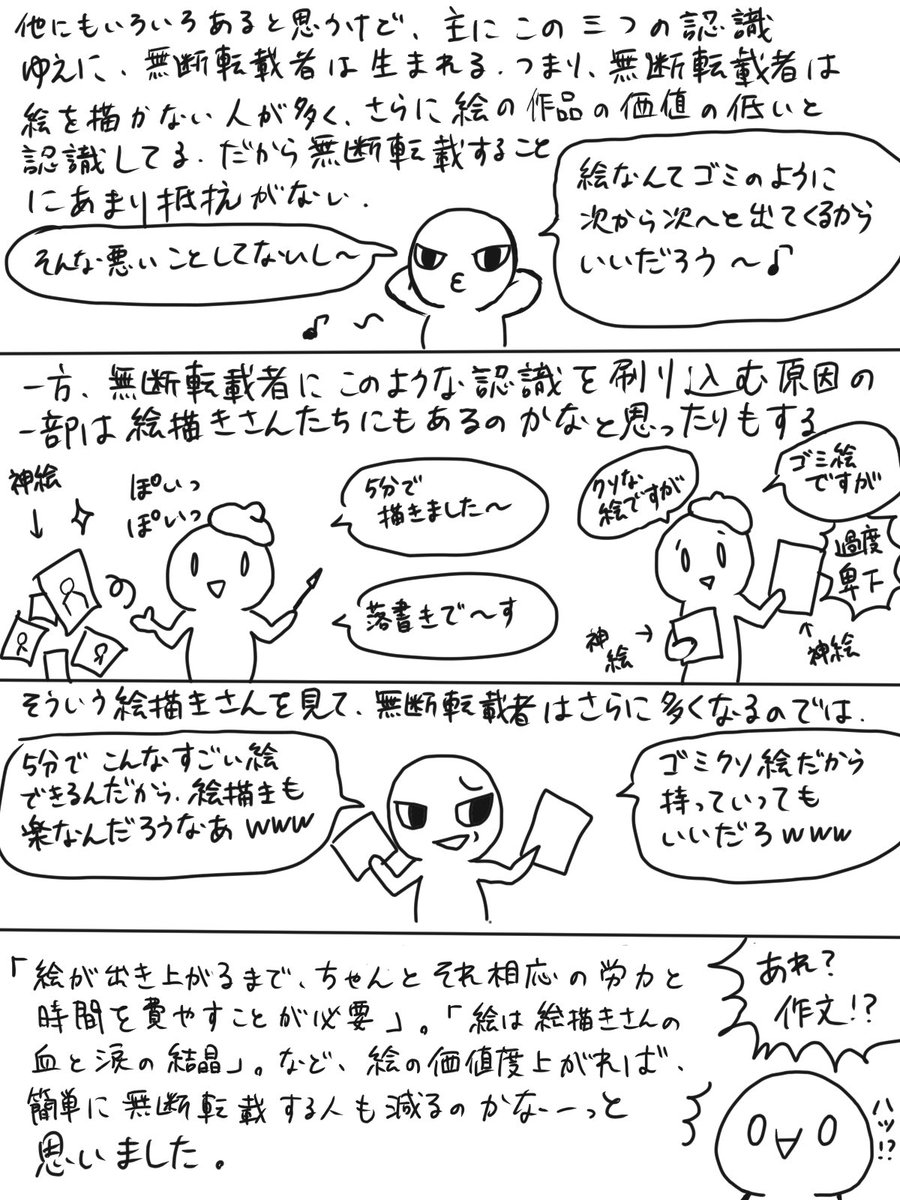 他にもいろいろあると思うけど、主にこの三つの認識
ゆえに、無断転載者は生まれる。つまり、無断転載者は
絵を描かない人が多く、さらに絵の作品の価値の低いと
認識してる。だから無断転載すること
にあまり抵抗がない。
絵なんてゴミのように
次から次へと出てくるから
いいだろう〜♪
そんな悪いことしてないし〜
♪〜
一方、無断転載者にこのような認識を刷り込む原因の
一部は絵描きさんたちにもあるのかなと思ったりもする
神絵
↓
ぽいっ
ぽいっ
5分で
描きました〜
落書きで〜す
クソな
絵ですが
ゴミ絵
ですが
過度
卑下
神
絵
→
↑
神絵
そういう絵描きさんを見て、無断転載者はさらに多くなるのでは。
5分でこんなすごい絵
できるんだから、絵描きも
楽なんだろうなあwww
ゴミクソ絵だから
持っていっても
いいだろwww
「絵が出き上がるまで、ちゃんとそれ相応の労力と
時間を費やすことが必要」。「絵は絵描きさんの
血と涙の結晶」。など、絵の価値度上がれば、
簡単に無断転載する人も減るのかなーーっと
思いました。
あれ?
作文!?
ハッ!?